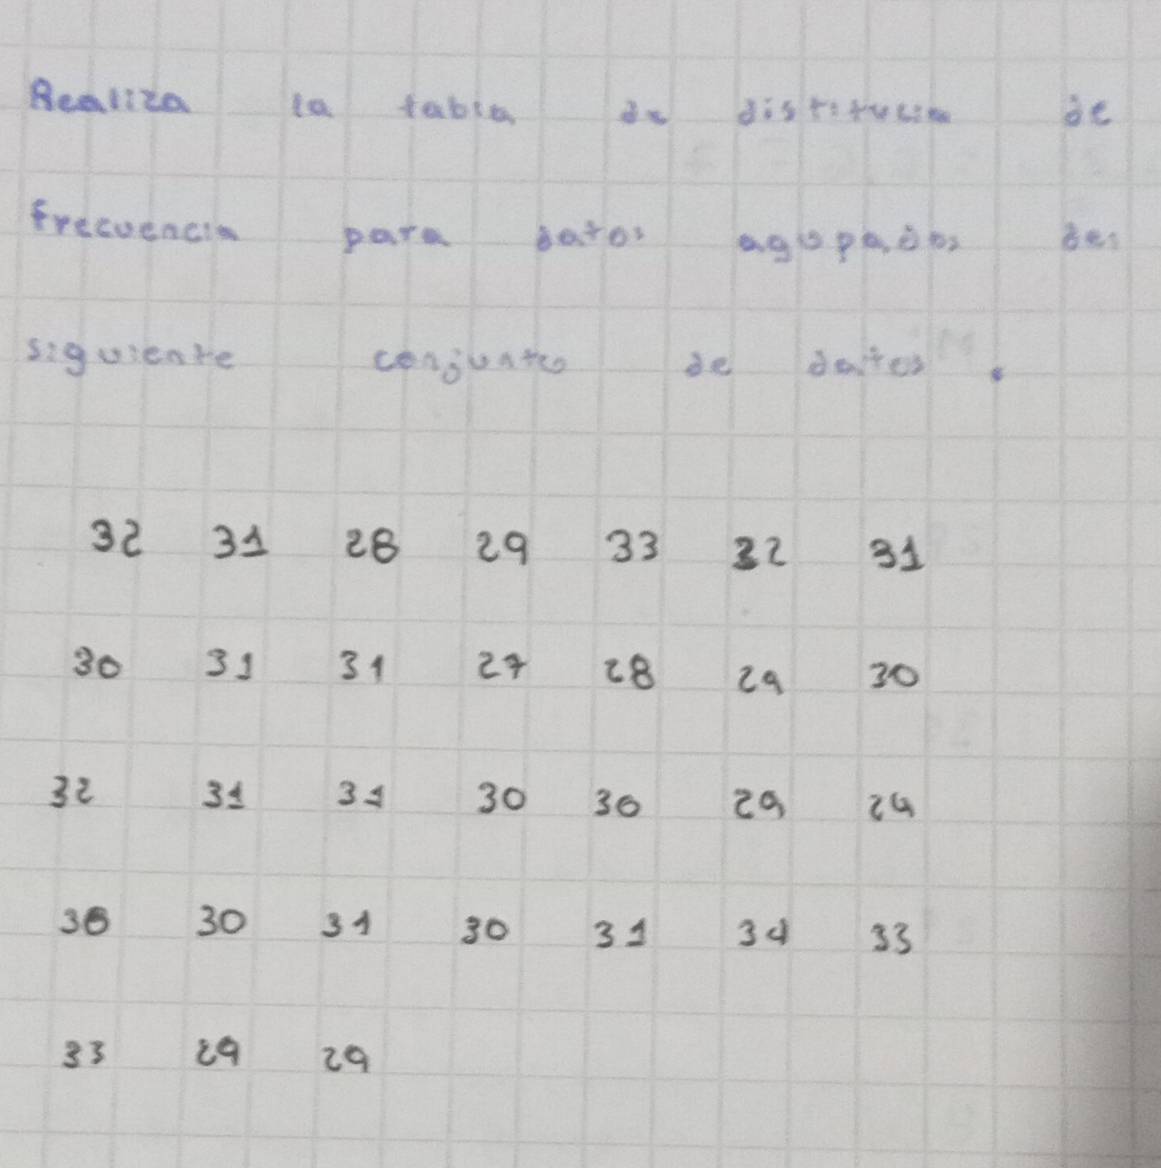 Realiza la tabla de distitucin de
frecuencia para datos agupados del
siguiente conjunto de datos.
32 31 28 29 33 32 31
30 31 31 27 28 29 30
32 31 31 30 30 29 29
30 30 31 30 31 34 33
33 29 29